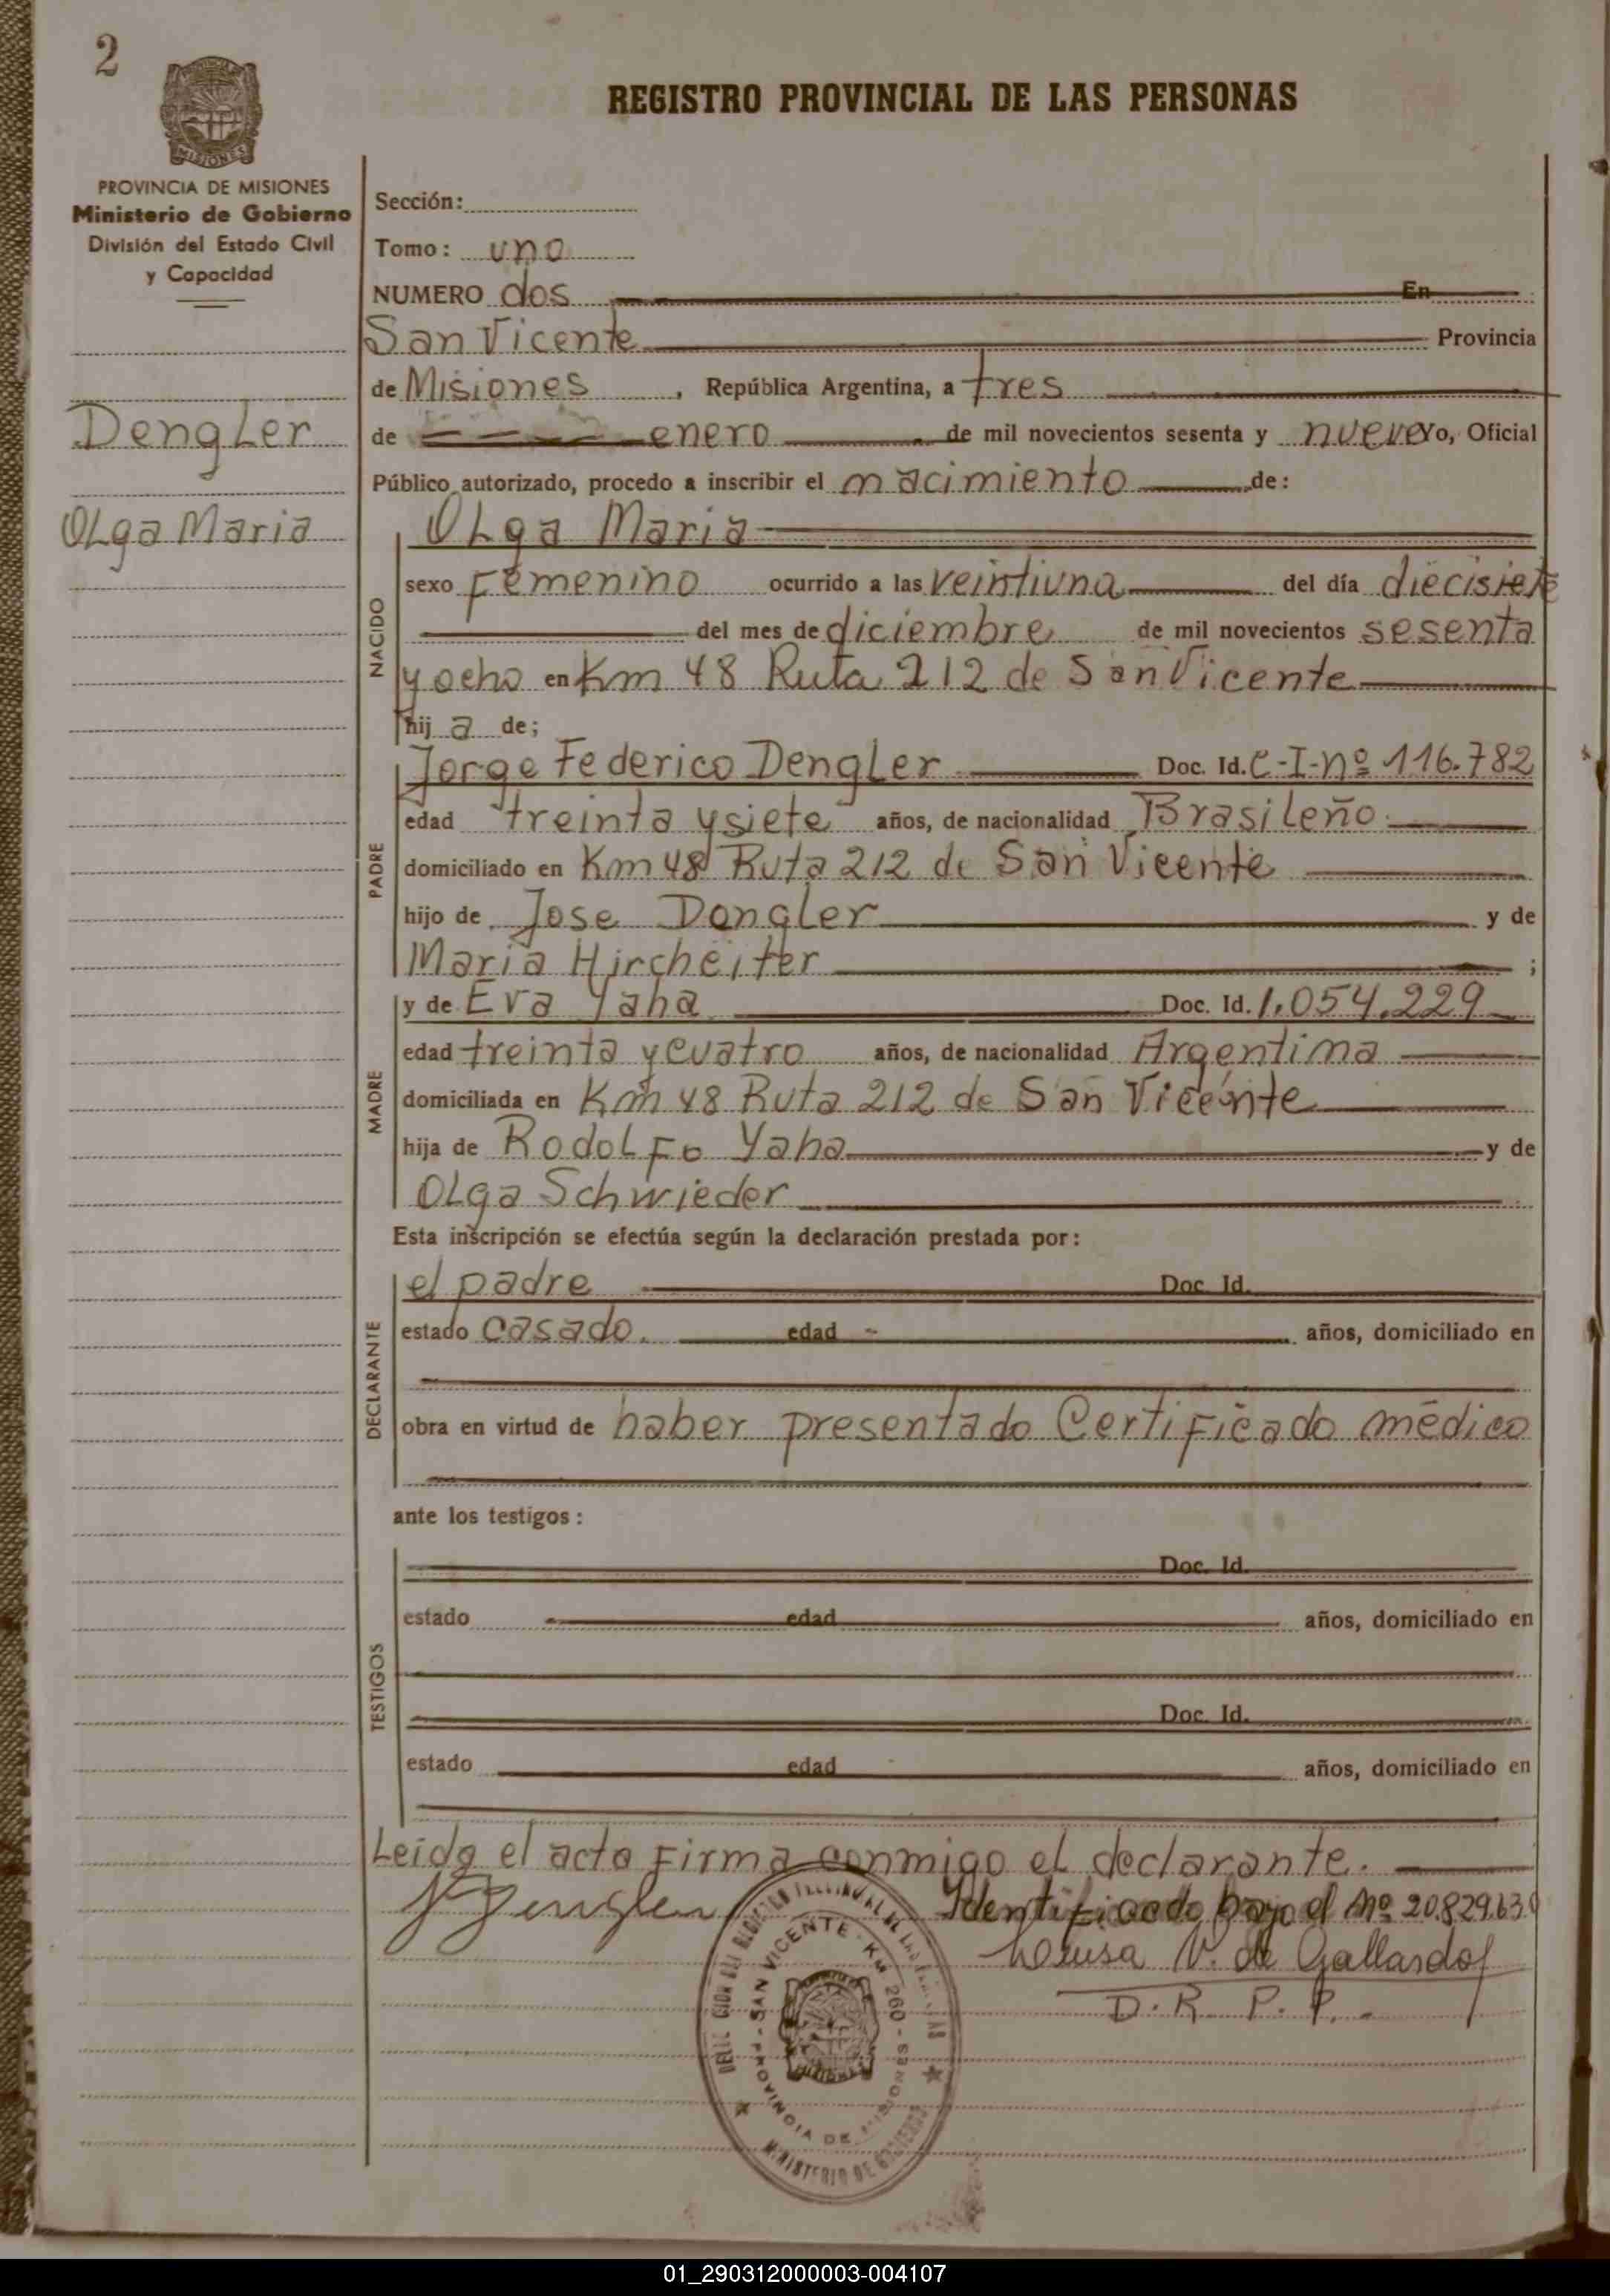 2
MISIONES
PROVINCIA DE MISIONES
Ministerio de Gobierno
División del Estado Civil
y Capacidad
Dengler
Olga Maria
REGISTRO PROVINCIAL DE LAS PERSONAS
Sección:
Tomo: uno
NUMERO dos En
San Vicente Provincia
de Misiones, República Argentina, a tres
de enero de mil novecientos sesenta y nueve Yo, Oficial
Público autorizado, procedo a inscribir el nacimiento de:
NACIDO
Olga Maria
sexo Femenino ocurrido a las veintiuna del día diecisiete
del mes de diciembre de mil novecientos sesenta
y ocho en Km 48 Ruta 212 de San Vicente
hij a de;
PADRE
Jorge Federico Dengler Doc. Id. C-I-nº 116.782
edad treinta y siete años, de nacionalidad Brasileño
domiciliado en Km 48 Ruta 212 de San Vicente
hijo de Jose Dongler y de
Maria Hircheiter ;
MADRE
y de Eva Yaha Doc. Id. 1.054.229
edad treinta y cuatro años, de nacionalidad Argentina
domiciliada en Km 48 Ruta 212 de San Vicente
hija de Rodolfo Yaha y de
Olga Schwieder
Esta inscripción se efectúa según la declaración prestada por:
DECLARANTE
el padre Doc. Id.
estado casado. edad - años, domiciliado en
obra en virtud de haber presentado Certificado médico
ante los testigos:
TESTIGOS
Doc. Id.
estado edad años, domiciliado en
Doc. Id.
estado edad años, domiciliado en
Leida el acta firma conmigo el declarante.
Identificado bajo el Nº 20.829.630
V. de Gallardo
D. R. P. P.
SAN VICENTE - KM 260 - MISIONES
PROVINCIA DE
MINISTERIO DE GOBIERNO
01_290312000003-004107